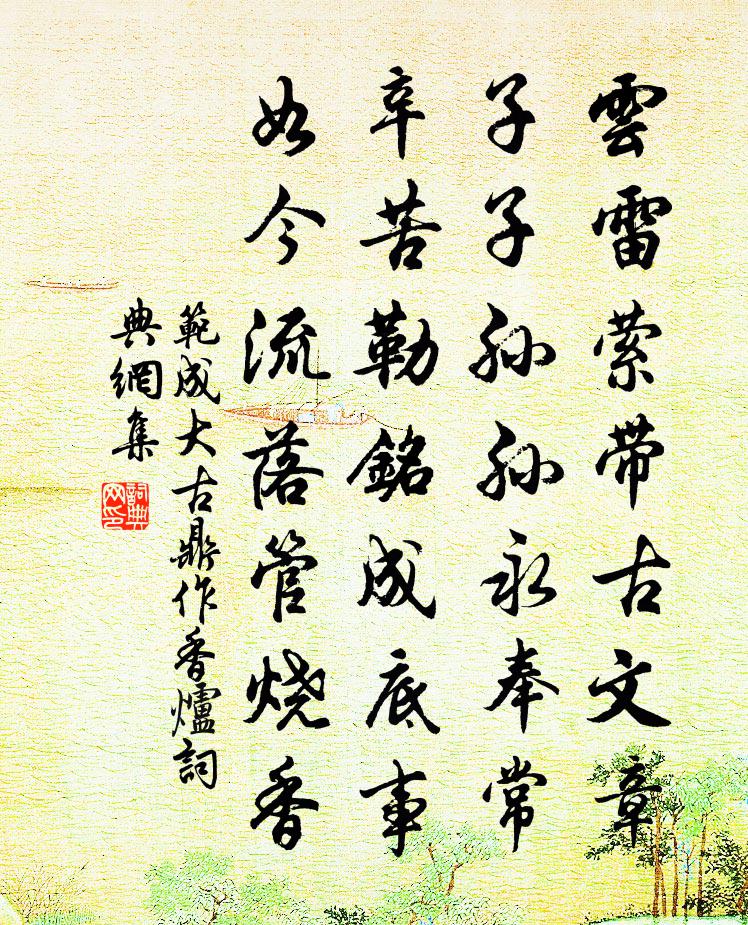 雲雷萦带古文章
子子孙孙永奉常
辛苦勒銘成底事
如今流落管烧香
範成大古鼎作香爐詞
典網集
詞典網印